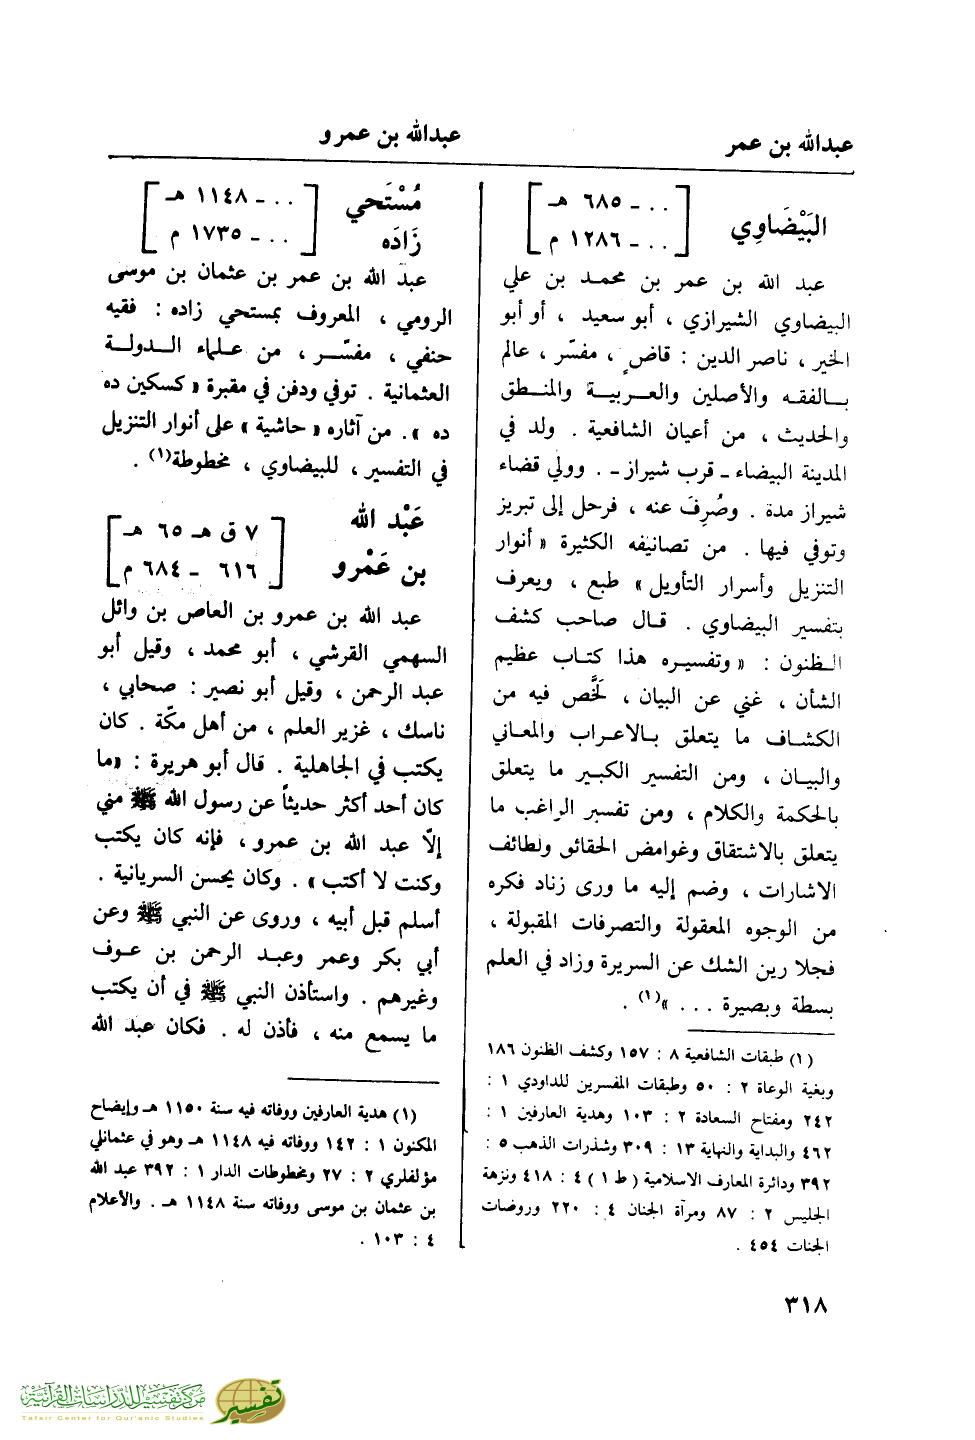 عبدالله بن عمر
عبدالله بن عمرو
البَيْضَاوِي
[ . . . ـ ٦٨٥ هـ
. . . ـ ١٢٨٦ م ]
عبد الله بن عمر بن محمد بن علي
البيضاوي الشيرازي ، أبو سعيد ، أو أبو
الخير ، ناصر الدين : قاضٍ ، مفسّر ، عالم
بالفقه والأصلين والعربية والمنطق
والحديث ، من أعيان الشافعية . ولد في
المدينة البيضاء ـ قرب شيراز ـ . وولي قضاء
شيراز مدة . وصُرِفَ عنه ، فرحل إلى تبريز
وتوفي فيها . من تصانيفه الكثيرة « أنوار
التنزيل وأسرار التأويل » طبع ، ويعرف
بتفسير البيضاوي . قال صاحب كشف
الظنون : « وتفسيره هذا كتاب عظيم
الشأن ، غني عن البيان ، لَخَّص فيه من
الكشاف ما يتعلق بالاعراب والمعاني
والبيان ، ومن التفسير الكبير ما يتعلق
بالحكمة والكلام ، ومن تفسير الراغب ما
يتعلق بالاشتقاق وغوامض الحقائق ولطائف
الاشارات ، وضم إليه ما ورى زناد فكره
من الوجوه المعقولة والتصرفات المقبولة ،
فجلا رين الشك عن السريرة وزاد في العلم
بسطة وبصيرة . . . »(١) .
(١) طبقات الشافعية ٨ : ١٥٧ وكشف الظنون ١٨٦
وبغية الوعاة ٢ : ٥٠ وطبقات المفسرين للداودي ١ :
٢٤٢ ومفتاح السعادة ٢ : ١٠٣ وهدية العارفين ١ :
٤٦٢ والبداية والنهاية ١٣ : ٣٠٩ وشذرات الذهب ٥ :
٣٩٢ ودائرة المعارف الاسلامية ( ط ١ ) ٤ : ٤١٨ ونزهة
الجليس ٢ : ٨٧ ومرآة الجنان ٤ : ٢٢٠ وروضات
الجنات ٤٥٤ .
مُسْتَحي
زَادَه
[ . . . ـ ١١٤٨ هـ
. . . ـ ١٧٣٥ م ]
عبد الله بن عمر بن عثمان بن موسى
الرومي ، المعروف بمستحي زاده : فقيه
حنفي ، مفسّر ، من علماء الدولة
العثمانية . توفي ودفن في مقبرة « كسكين ده
ده » . من آثاره « حاشية » على أنوار التنزيل
في التفسير ، للبيضاوي ، مخطوطة(١) .
عَبْد الله
بن عَمْرو
[ ٧ ق هـ ـ ٦٥ هـ
٦١٦ ـ ٦٨٤ م ]
عبد الله بن عمرو بن العاص بن وائل
السهمي القرشي ، أبو محمد ، وقيل أبو
عبد الرحمن ، وقيل أبو نصير : صحابي ،
ناسك ، غزير العلم ، من أهل مكّة . كان
يكتب في الجاهلية . قال أبو هريرة : « ما
كان أحد أكثر حديثاً عن رسول الله ﷺ مني
إلّا عبد الله بن عمرو ، فإنه كان يكتب
وكنت لا أكتب » . وكان يحسن السريانية .
أسلم قبل أبيه ، وروى عن النبي ﷺ وعن
أبي بكر وعمر وعبد الرحمن بن عوف
وغيرهم . واستأذن النبي ﷺ في أن يكتب
ما يسمع منه ، فأذن له . فكان عبد الله
(١) هدية العارفين ووفاته فيه سنة ١١٥٠ هـ وإيضاح
المكنون ١ : ١٤٢ ووفاته فيه ١١٤٨ هـ وهو في عثمانلي
مؤلفلري ٢ : ٢٧ ومخطوطات الدار ١ : ٣٩٢ عبد الله
بن عثمان بن موسى ووفاته سنة ١١٤٨ هـ . والأعلام
٤ : ١٠٣ .
٣١٨
مركز تفسير للدراسات القرآنية
Tafsir Center for Qur'anic Studies
تفسير